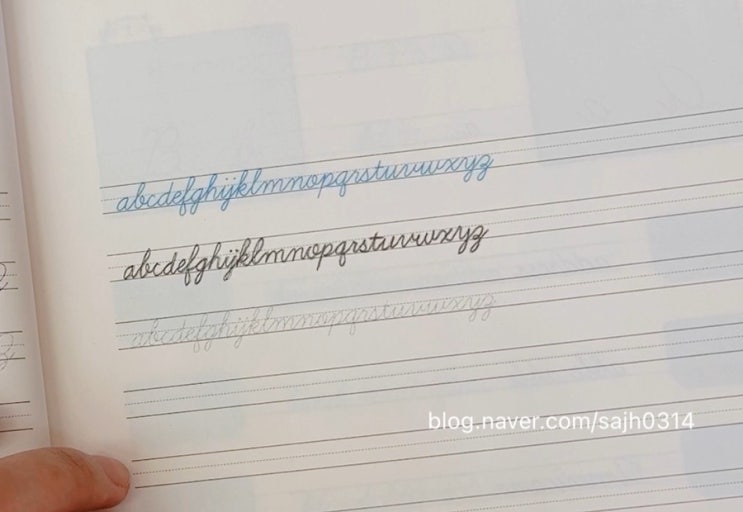 abcdefghijklmnopqrstuvwxyz
abcdefghijklmnopqrstuvwxyz
abcdefghijklmnopqrstuvwxyz
blog.naver.com/sajh0314